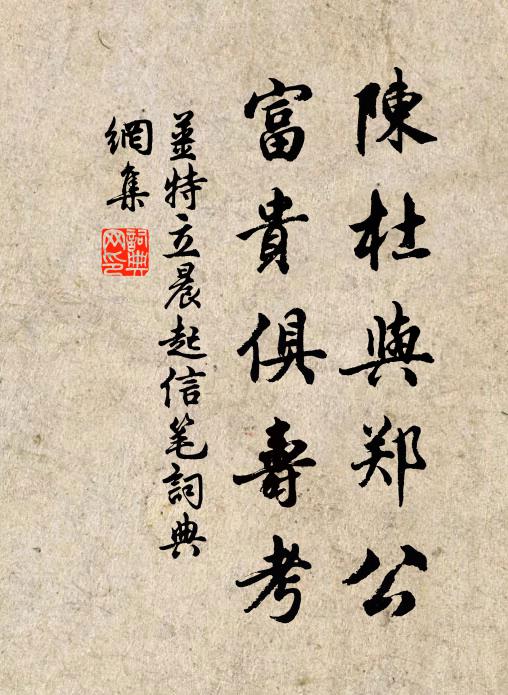 陳杜與郑公
富貴俱壽考
姜特立晨起信笔詞典
網集
詞典網印